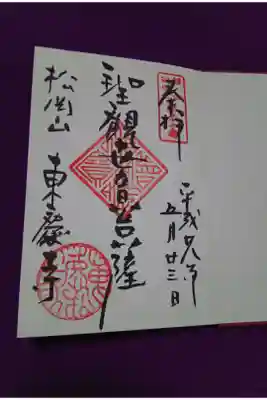 奉拝
平成廿八年
五月廿三日
聖観世音菩薩
松岡山
東慶寺